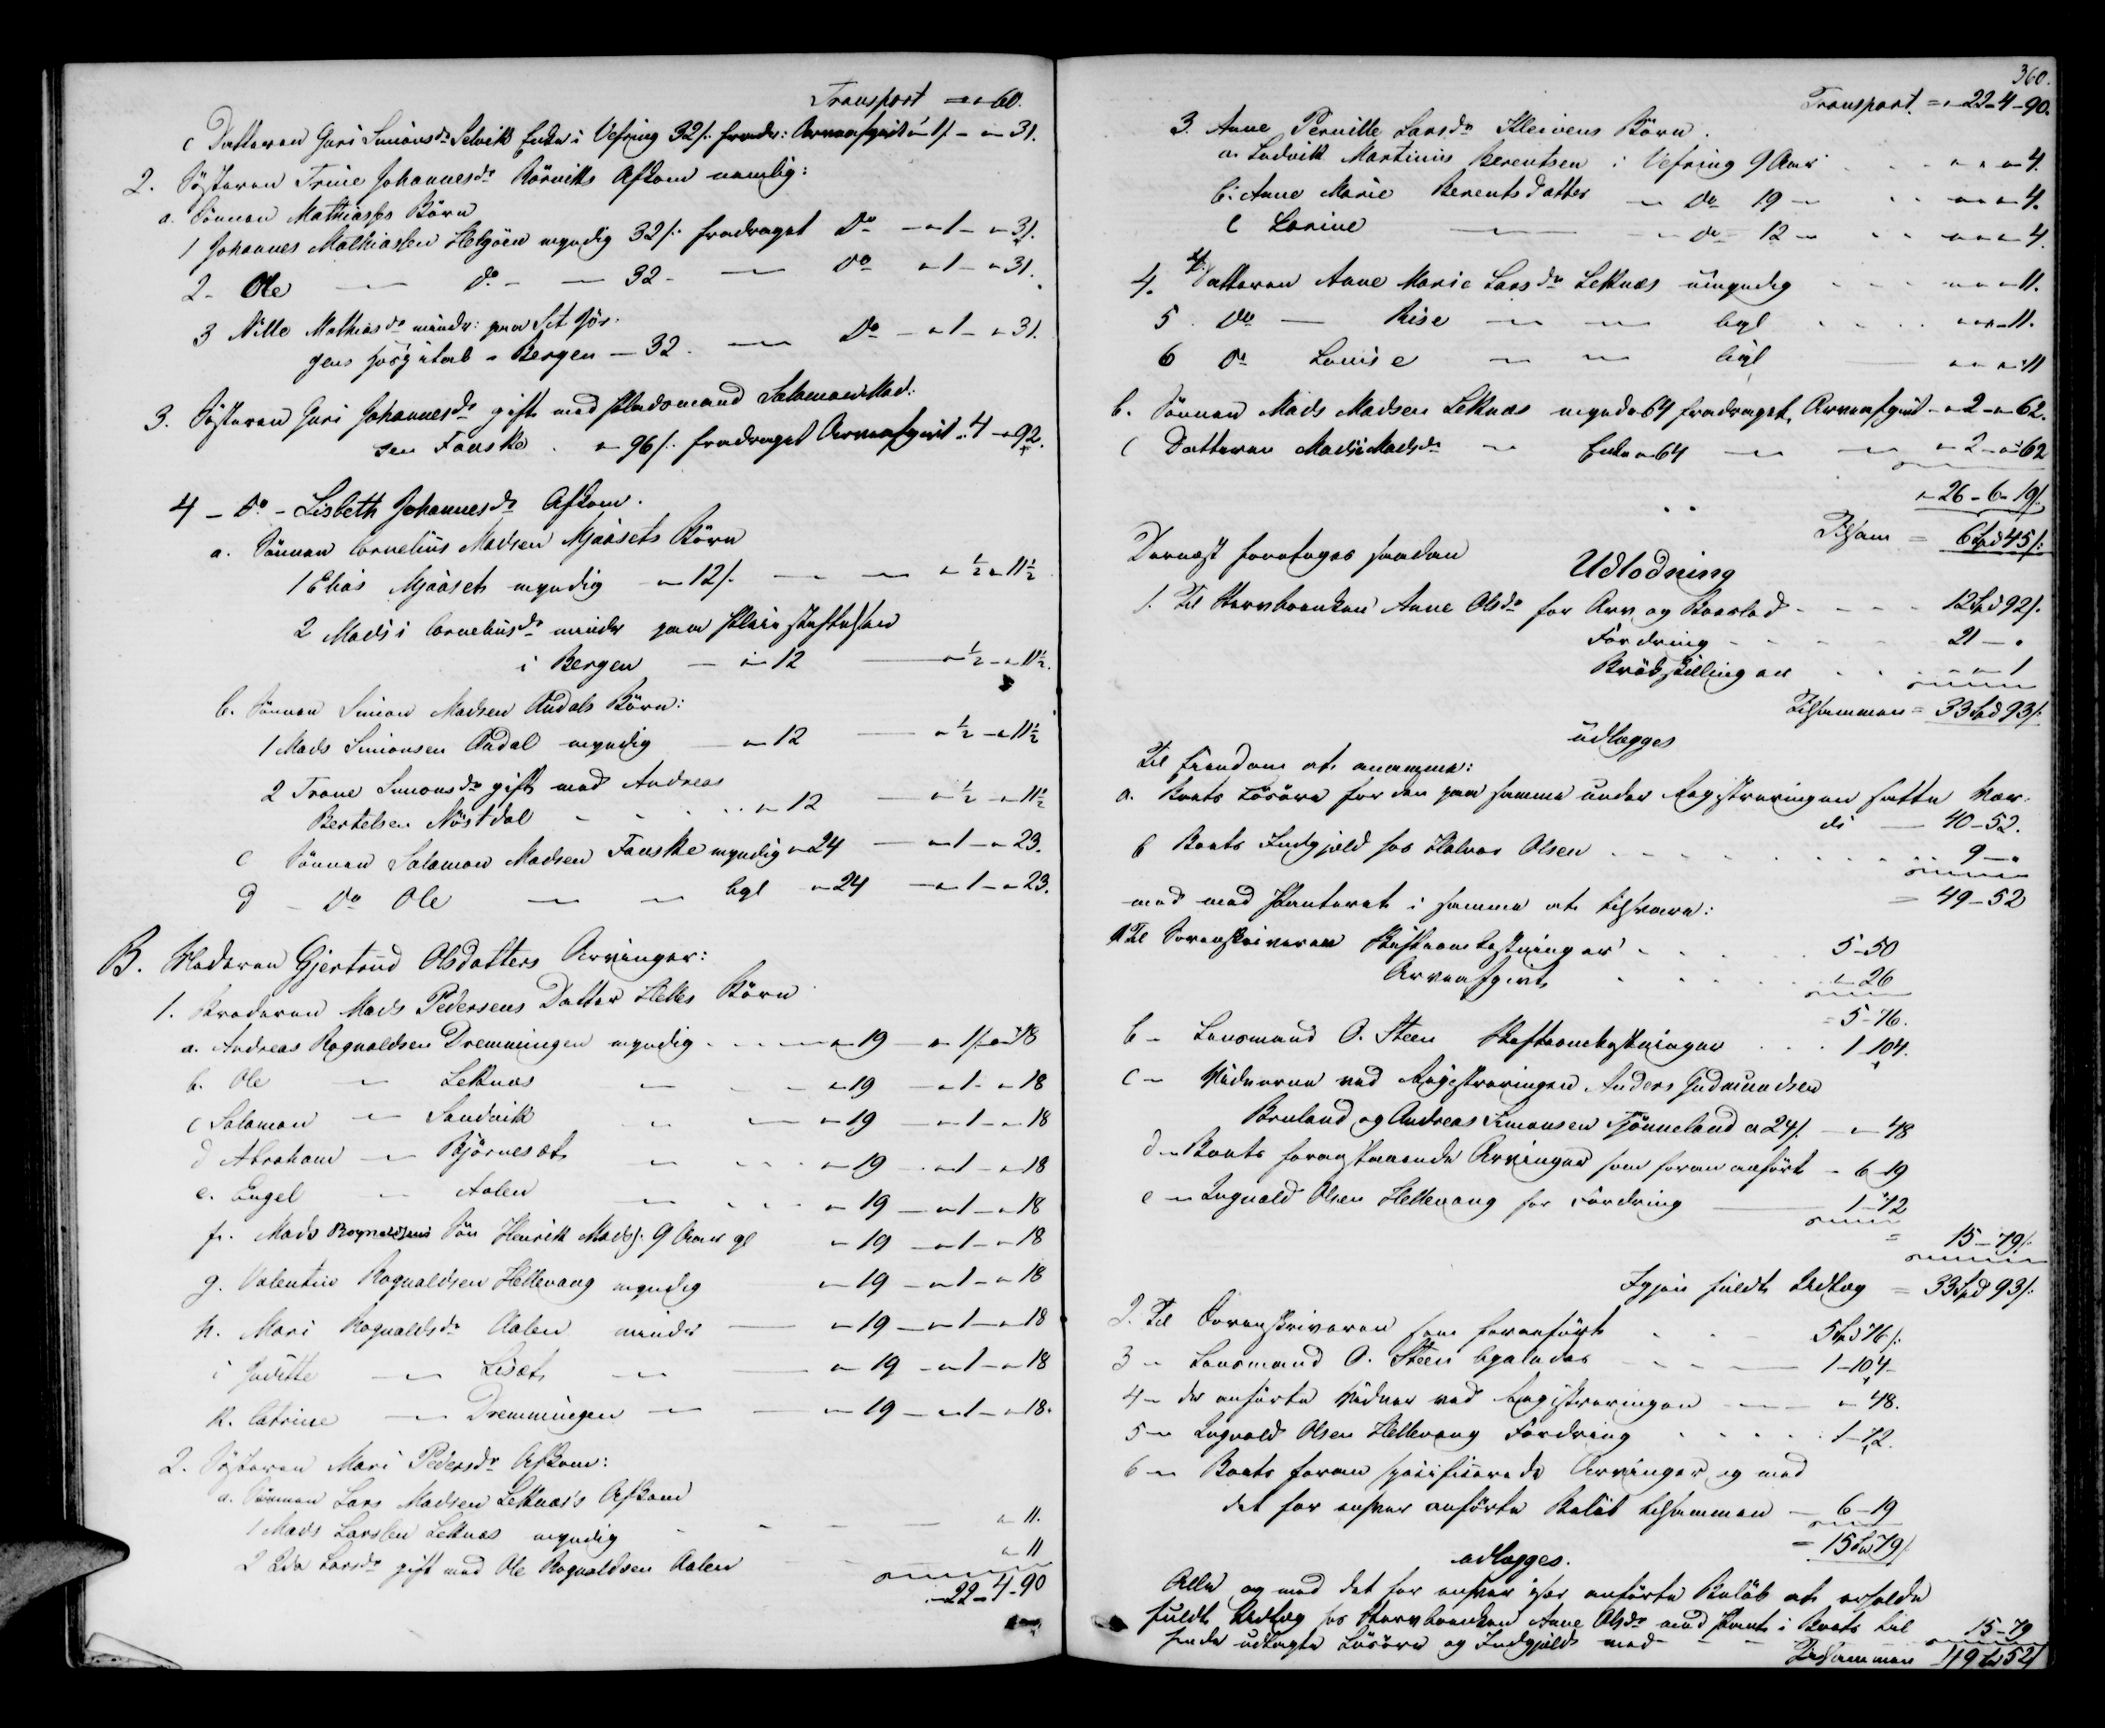 Transport = " 60.
c Datteren Guri Simonsdr Selvik Enke i Vefring 32/. fradr: Arveafgivt " 1/ - " 31.
2. Søsteren Trine Johannesdr Rørviks Afkom nemlig:
a. Sønnen Mathias's Børn
1 Johannes Mathiassen Helgøen myndig 32/: fradraget Do - " 1 - " 31.
2 - Ole - do - - 32 - - Do " 1 - " 31.
3 Nille Mathiasdr mindr: paa Sct Jør-
gens Hospital i Bergen - 32. - Do - " 1 - " 31.
3. Søsteren Guri Johannesdr gift med Pladsmand Salamon Mad-
sen Fauske . " 96/. fradraget Arveafgivt " 4 - " 92.
4 - do - Lisbeth Johannesdr Afkom.
a. Sønnen Cornelius Madsen Mjaasets Børn
1 Elias Mjaaset myndig - " 12/. - - " ½ " 11½
2 Madsi Corneliusdr mindr paa Pleiestiftelsen
i Bergen - " 12 - " ½ - " 11½.
b. Sønnen Simon Madsen Aadals Børn:
1 Mads Simonsen Aadal myndig - " 12 - " ½ - " 11½
2 Trone Simonsdr gift med Andreas
Bertelsen Nøstdal - - - " 12 - " ½ - " 11½
c Sønnen Salamon Madsen Fauske myndig " 24 - " 1 - " 23.
d - Do Ole - - ligl " 24 - " 1 - " 23.
B. Moderen Gjertrud Olsdatters Arvinger:
1. Broderen Mads Pedersens Datter Helles Børn
a. Andreas Rognaldsen Dremmingen myndig - - " 19 - " 1/ - " 18
b. Ole - Leknæs - - " 19 - " 1 - " 18
c Salamon - Sandvik - - " 19 - " 1 - " 18
d Abraham - Bjørneset - - " 19 - " 1 - " 18
e. Engel - Aalen - - " 19 - " 1 - " 18
f. Mads Rognaldsens Søn Henrik Madss: 9 Aar gl " 19 - " 1 - " 18
g. Valentin Rognaldsen Hellevang myndig " 19 - " 1 - " 18
h. Mari Rognaldsdr Aalen mindr - " 19 - " 1 - " 18
i Juditte - Liset - - " 19 - " 1 - " 18
k. Catrine - Dremmingen - - " 19 - " 1 - " 18.
2. Søsteren Mari Pedersdr Afkom:
a. Sønnen Lars Madsen Leknæs's Afkom
1 Mads Larssen Leknæs myndig - - - " 11.
2 Eda Larsdr gift med Ole Rognaldsen Aalen " 11
" 22 - 4 - 90
360.
Transport. = " 22 - 4 - 90.
3. Anne Pernille Larsdr Kleivens Børn.
a. Ludvik Martinus Berentsen i Vefring 9 Aar . . . " " " 4.
b. Anne Marie Berentsdatter - do 19 - . . " " " 4.
c Larine - - do - 12 - . . " " " 4.
4. Datteren Anne Marie Larsdr Leknæs umyndig . . . " " " 11.
5. Do - Lise - - ligl . . . " " " 11.
6 do Louise - - ligl - " " " 11
b. Sønnen Mads Madsen Leknæs mynd " 64 fradraget Arveafgivt - " 2 - " 62.
c Datteren Madsi Madsdr - Enke " 64 - - " 2 - " 62
" 26 - 6 - 19/.
Tilsam = 6 Spd 45/:
Dernæst foretoges saadan
Udlodning
1. Til Stervboenken Anne Olsdr for Arv og Boeslod - - - 12 Spd 92/.
Fordring - - - 21 - "
Brøkskillinger . . " - 1
Tilsammen = 33 Spd 93/:
udlægges
Til Eiendom at annamme:
a. Boets Løsøre for den paa samme under Registreringen satte Vær-
di - 40 - 52.
b Boets Indgjeld hos Halvor Olsen - - - - 9 - "
= 49 - 52
mod med Panteret i samme at tilsvare:
a Til Sorenskriveren Skifteomkostninger . . . 5 - 50
Arveafgivt . . . " - 26
= 5 - 76.
b - Lensmand O. Steen Skifteomkostninger . . . 1 - 104.
c - Vidnerne ved Registreringen Anders Gudmundsen
Bruland og Andreas Simonsen Tjønneland a 24/. - " 48
d - Boets foranstaaende Arvinger som foran anført - 6 - 19
e - Ragnald Olsen Hellevang for Fordring - 1 - 72
= 15 - 79/.
Igjen fuldt Udlæg = 33 Spd 93/:
2. Til Sorenskriveren som foranført . . - 5 Spd 76/:
3 - Lensmand O. Steen ligeledes - - - 1 - 104 -
4 - de anførte Vidner ved Registreringen - - " 48.
5 - Ragnald Olsen Hellevang Fordring . . . . 1 - 72.
6 - Boets foran specificerede Arvinger og med
det for enhver anførte Beløb tilsammen - 6 - 19
= 15 Spd 79/.
udlægges.
Alle og med det for enhver især anførte Beløb at erholde
fuldt Udlæg hos Stervboenken Anne Olsdr med Pant i Boets til
hende udlagte Løsøre og Indgjeld med - - - 15 - 79
Tilsammen 49 Spd 52/